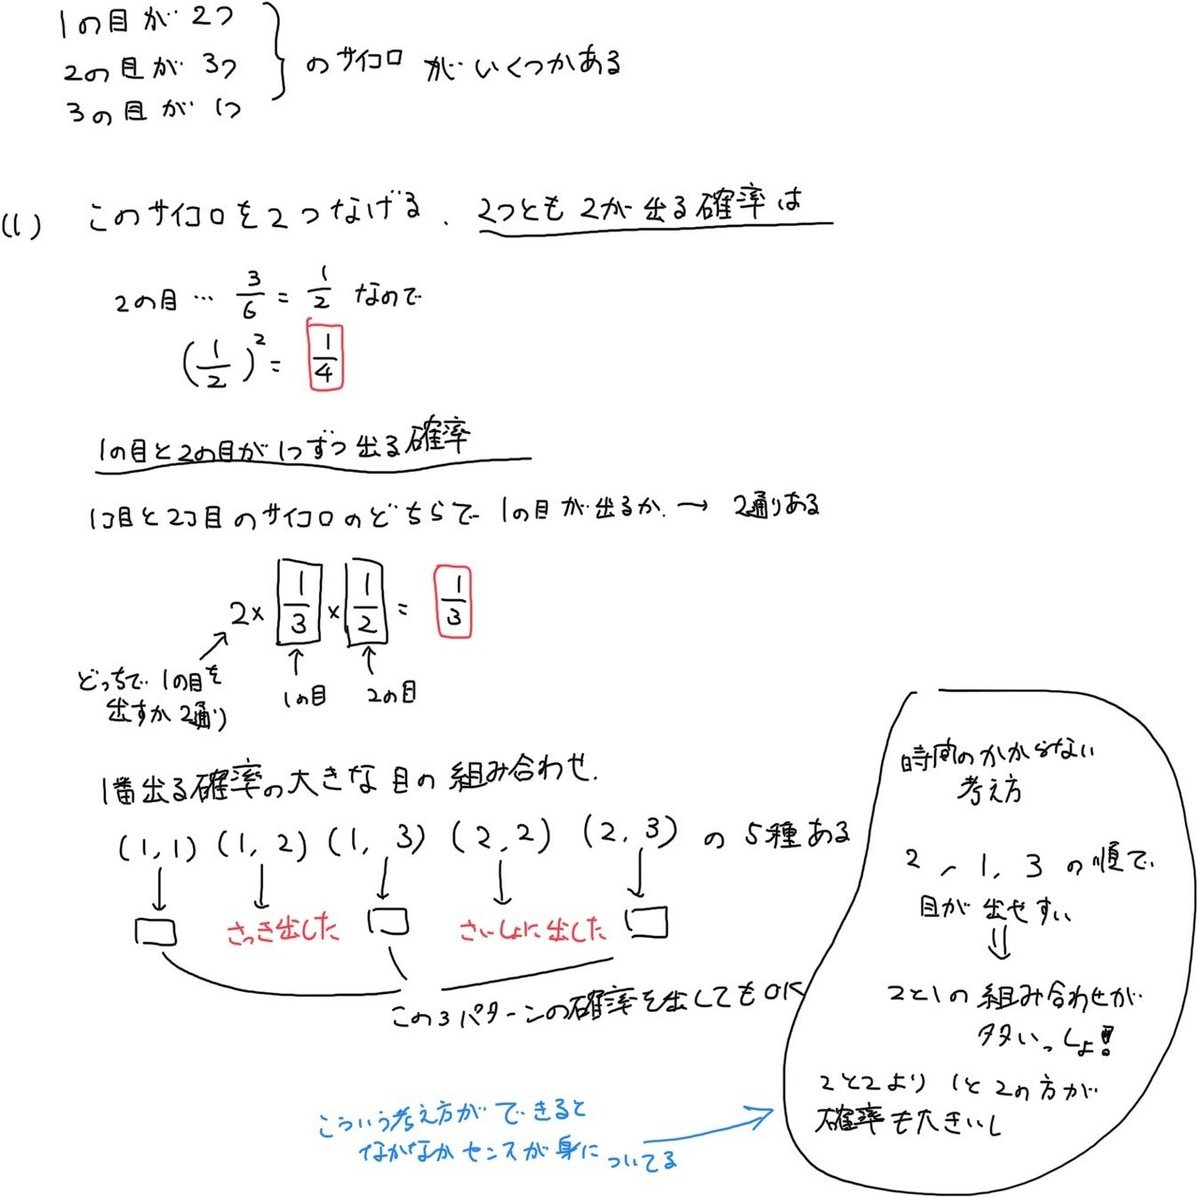 1の目が 2つ
2の目が 3つ
3の目が 1つ
のサイコロ がいくつかある
(1) このサイコロを2つなげる. 2つとも 2が出る確率は
2の目… 3/6 = 1/2 なので
(1/2)² = 1/4
1の目と2の目が1つずつ出る確率
1コ目と2コ目のサイコロのどちらで 1の目が出るか. → 2通りある
2× 1/3 × 1/2 = 1/3
どっちで 1の目を
出すか 2通り
1の目
2の目
1番出る確率の大きな目の組み合わせ.
(1,1) (1,2) (1,3) (2,2) (2,3) の 5種ある
さっき出した
さいしょに出した
この3パターンの確率を出してもOK
時間のかからない
考え方
2、1、3の順で
目が出やすい
2と1の組み合わせが
多いっしょ!
2と2より 1と2の方が
確率も大きいし
こういう考え方ができると
なかなかセンスが身についてる